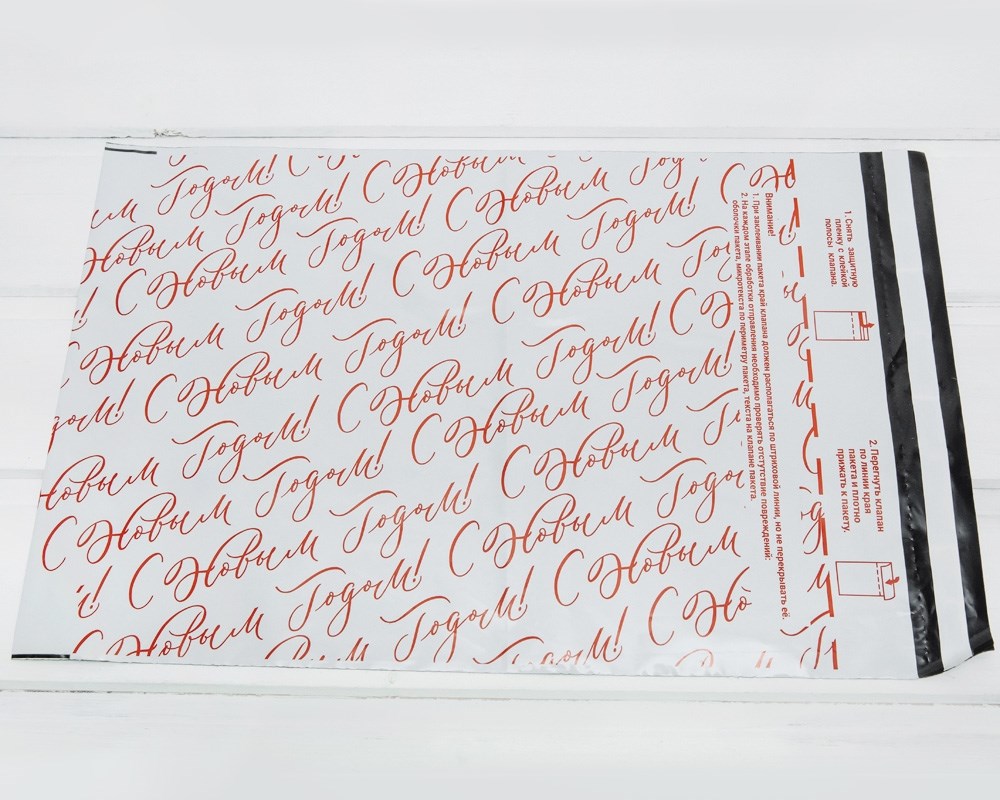 С Новым Годом!
С Новым Годом! С Новым Годом!
С Новым Годом! С Новым Годом!
С Новым Годом! С Новым Годом!
С Новым Годом! С Новым Годом!
С Новым Годом! С Новым Годом!
С Новым Годом! С Новым
Внимание!
1. При заклеивании пакета край клапана должен располагаться по штриховой линии, но не перекрывать её.
2. На каждом этапе обработки отправления необходимо проверять отсутствие повреждений:
оболочки пакета, микротекста по периметру пакета, текста на клапане пакета.
1. Снять защитную
пленку с клейкой
полосы клапана.
2. Перегнуть клапан
по линии края
пакета и плотно
прижать к пакету.